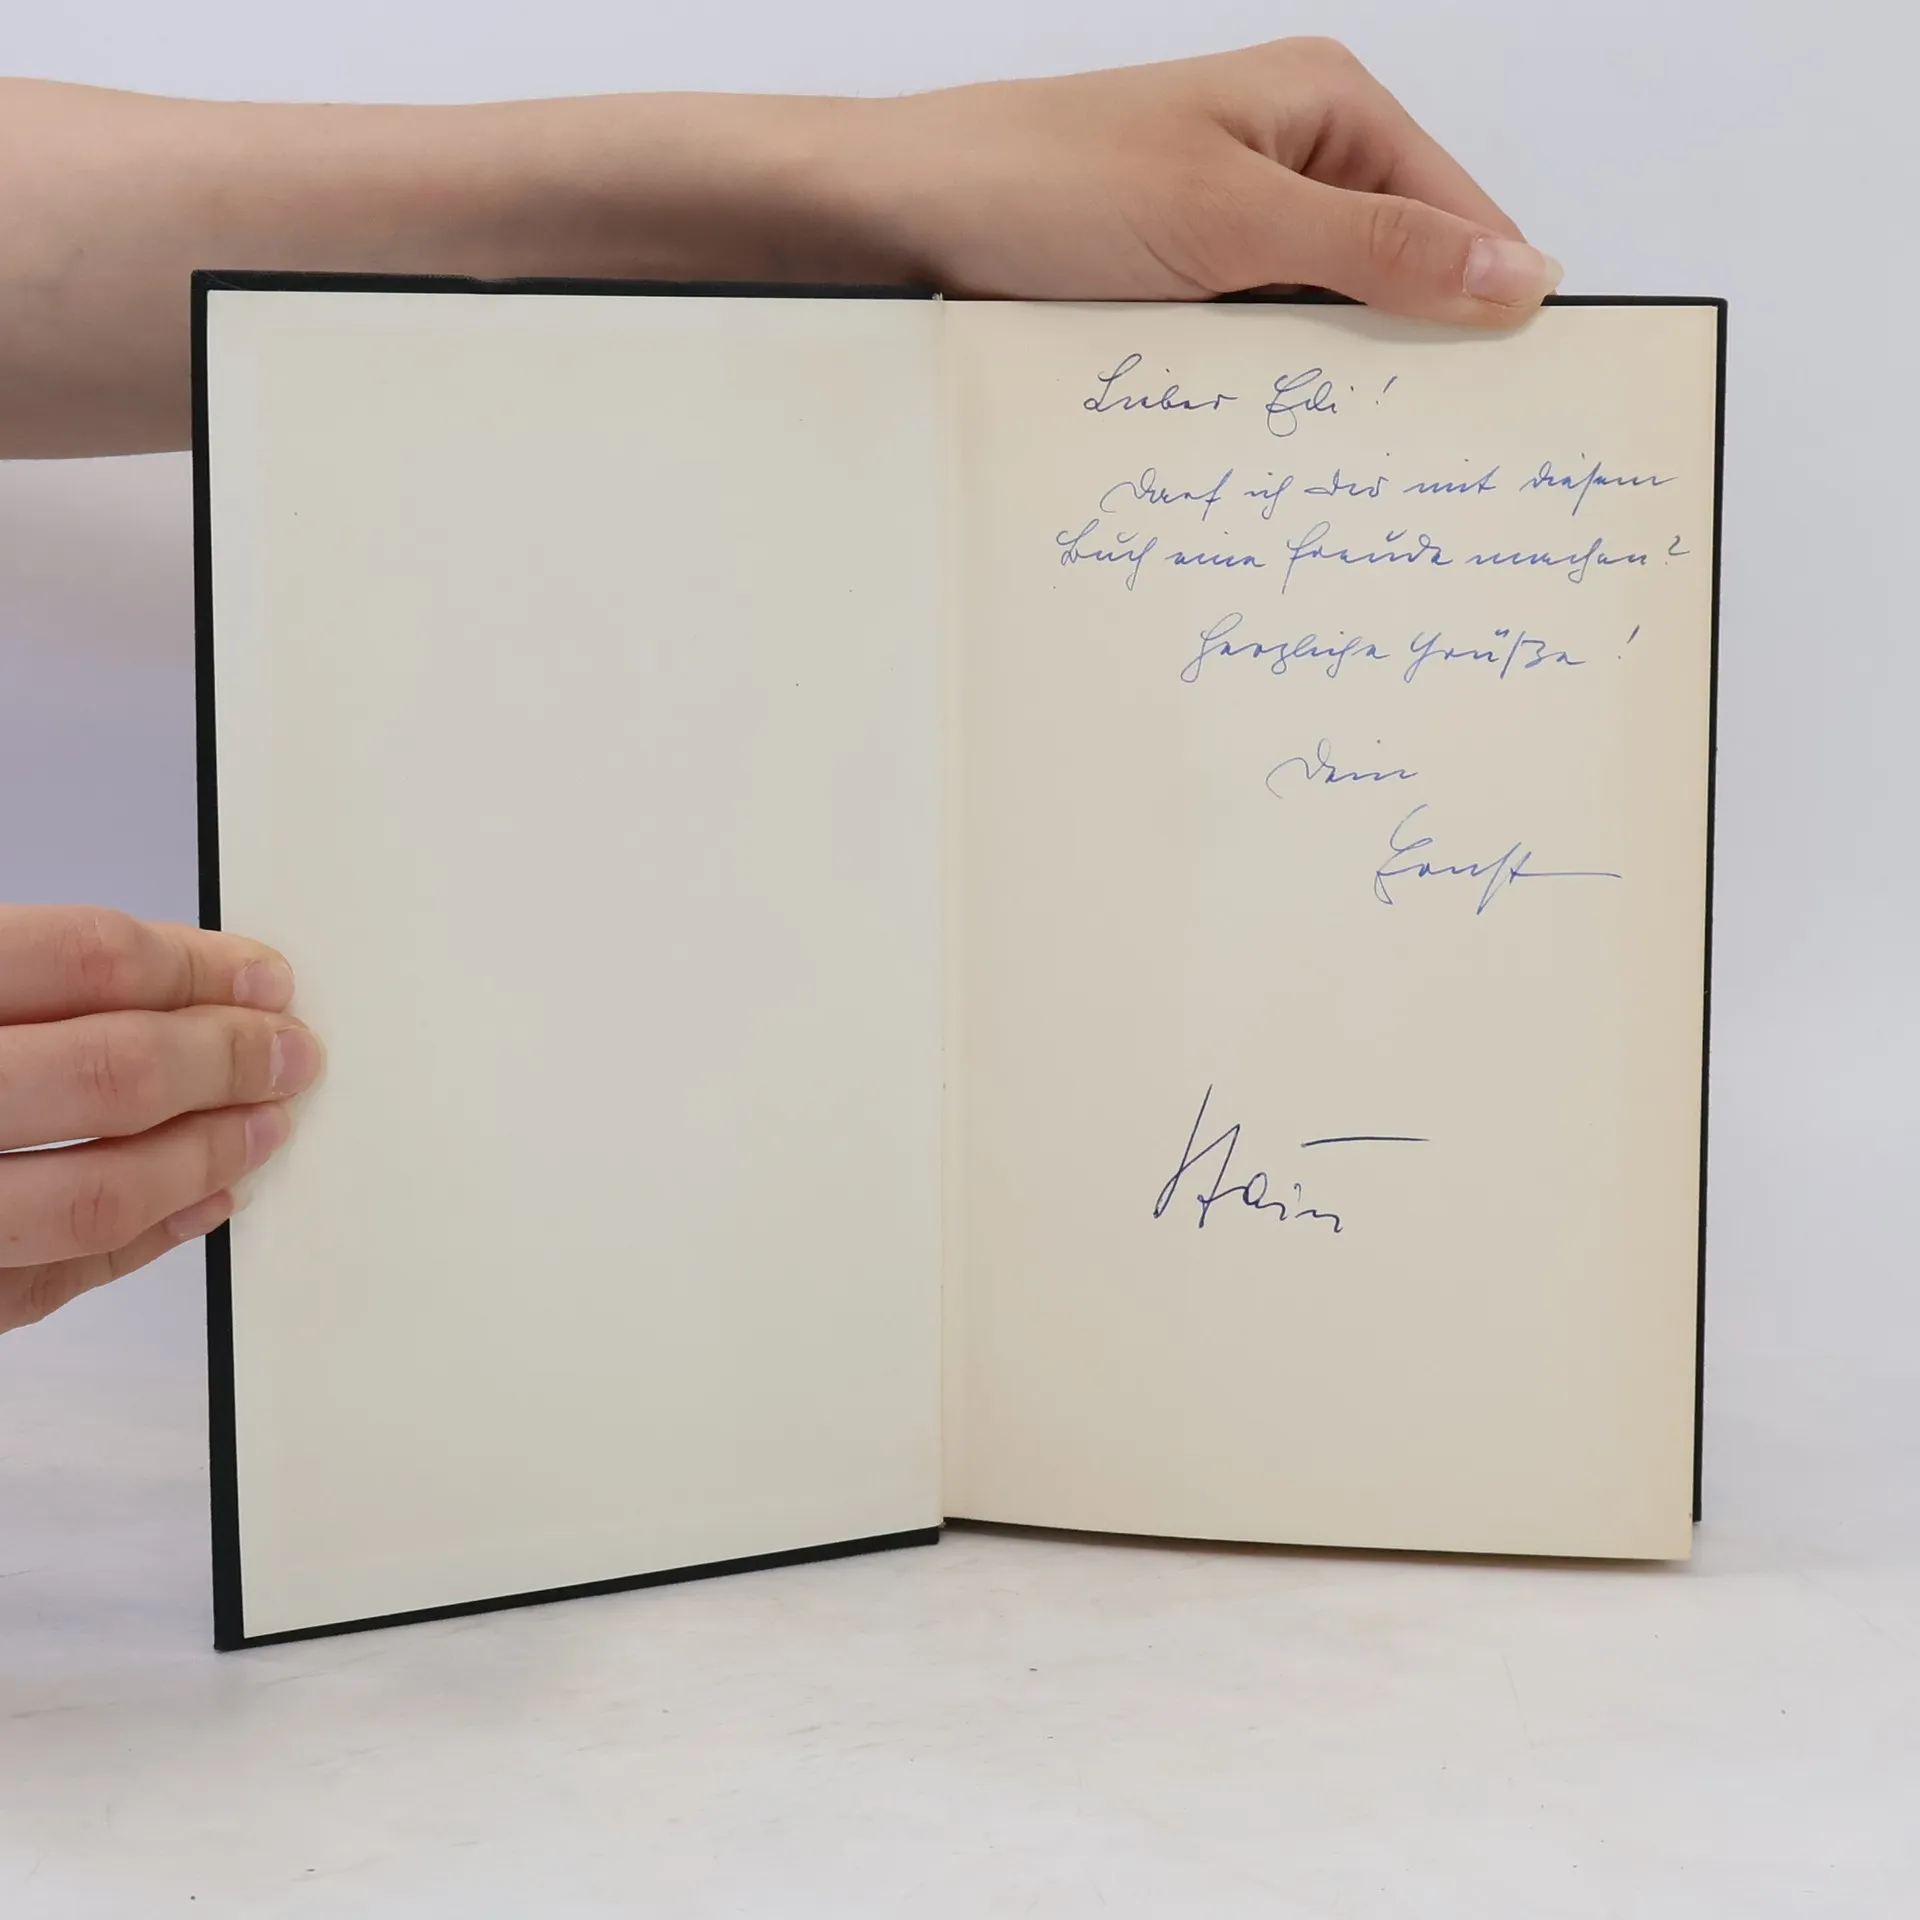 Lieber Edi!
Darf ich Dir mit diesem
Buch eine Freude machen?
Herzliche Grüße!
Dein
Ernst